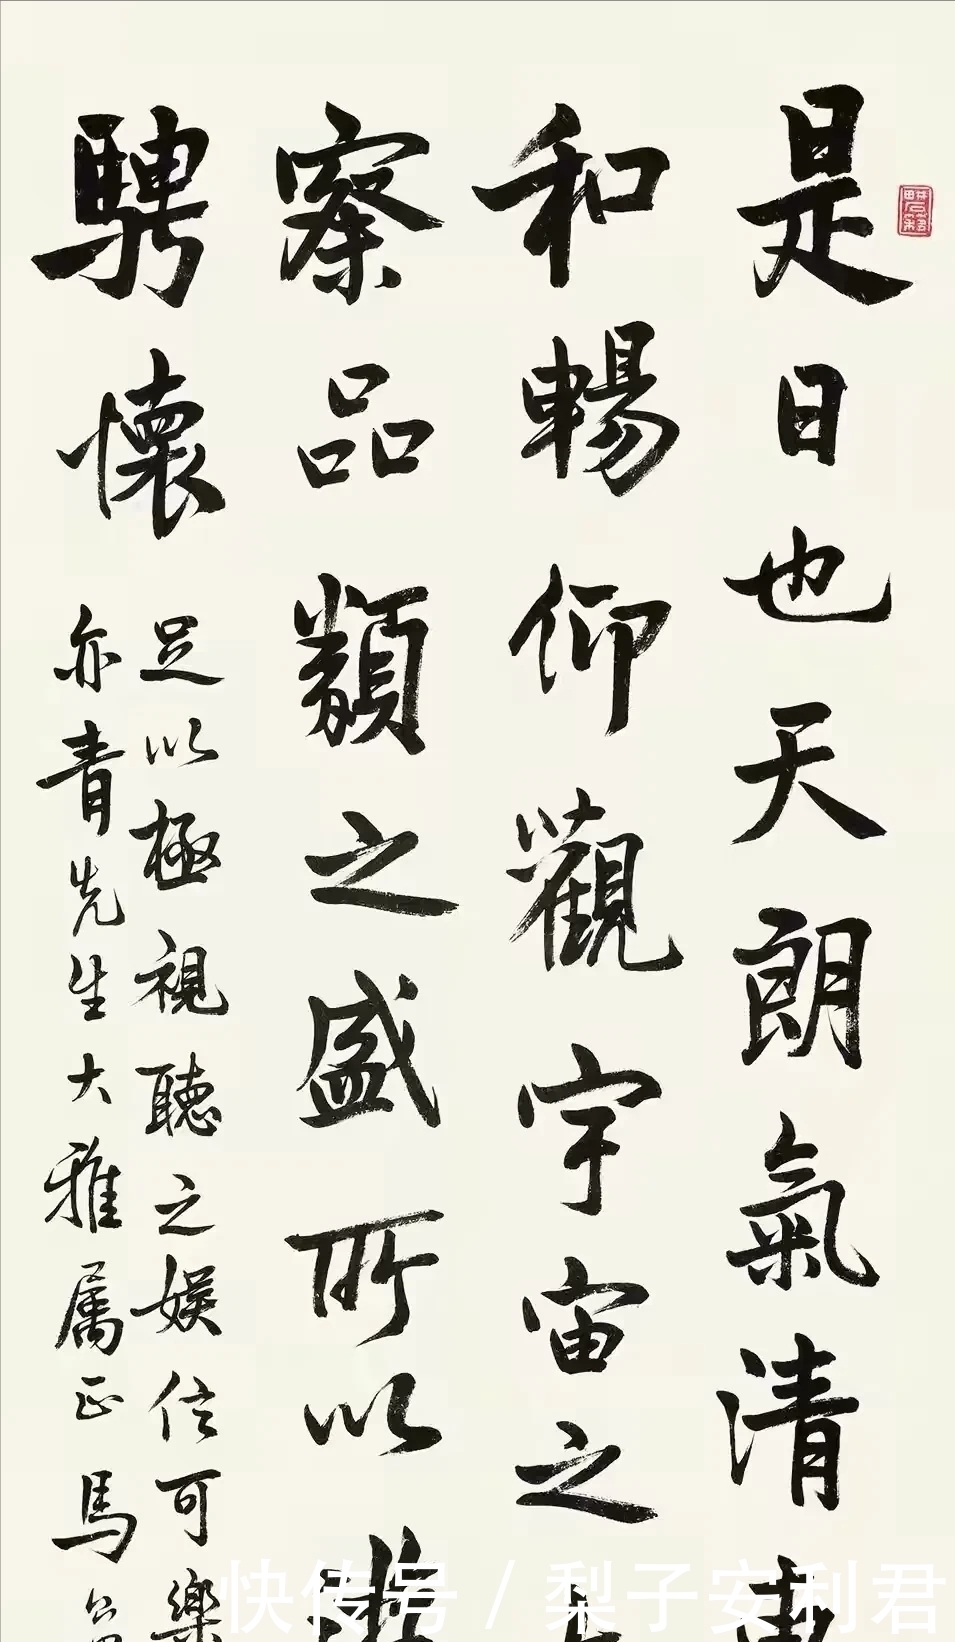 是日也天朗氣清
和暢仰觀宇宙之
察品類之盛所以遊
騁懷
足以極視聽之娛信可樂
亦青先生大雅属正 馬
快传号 / 梨子安利君